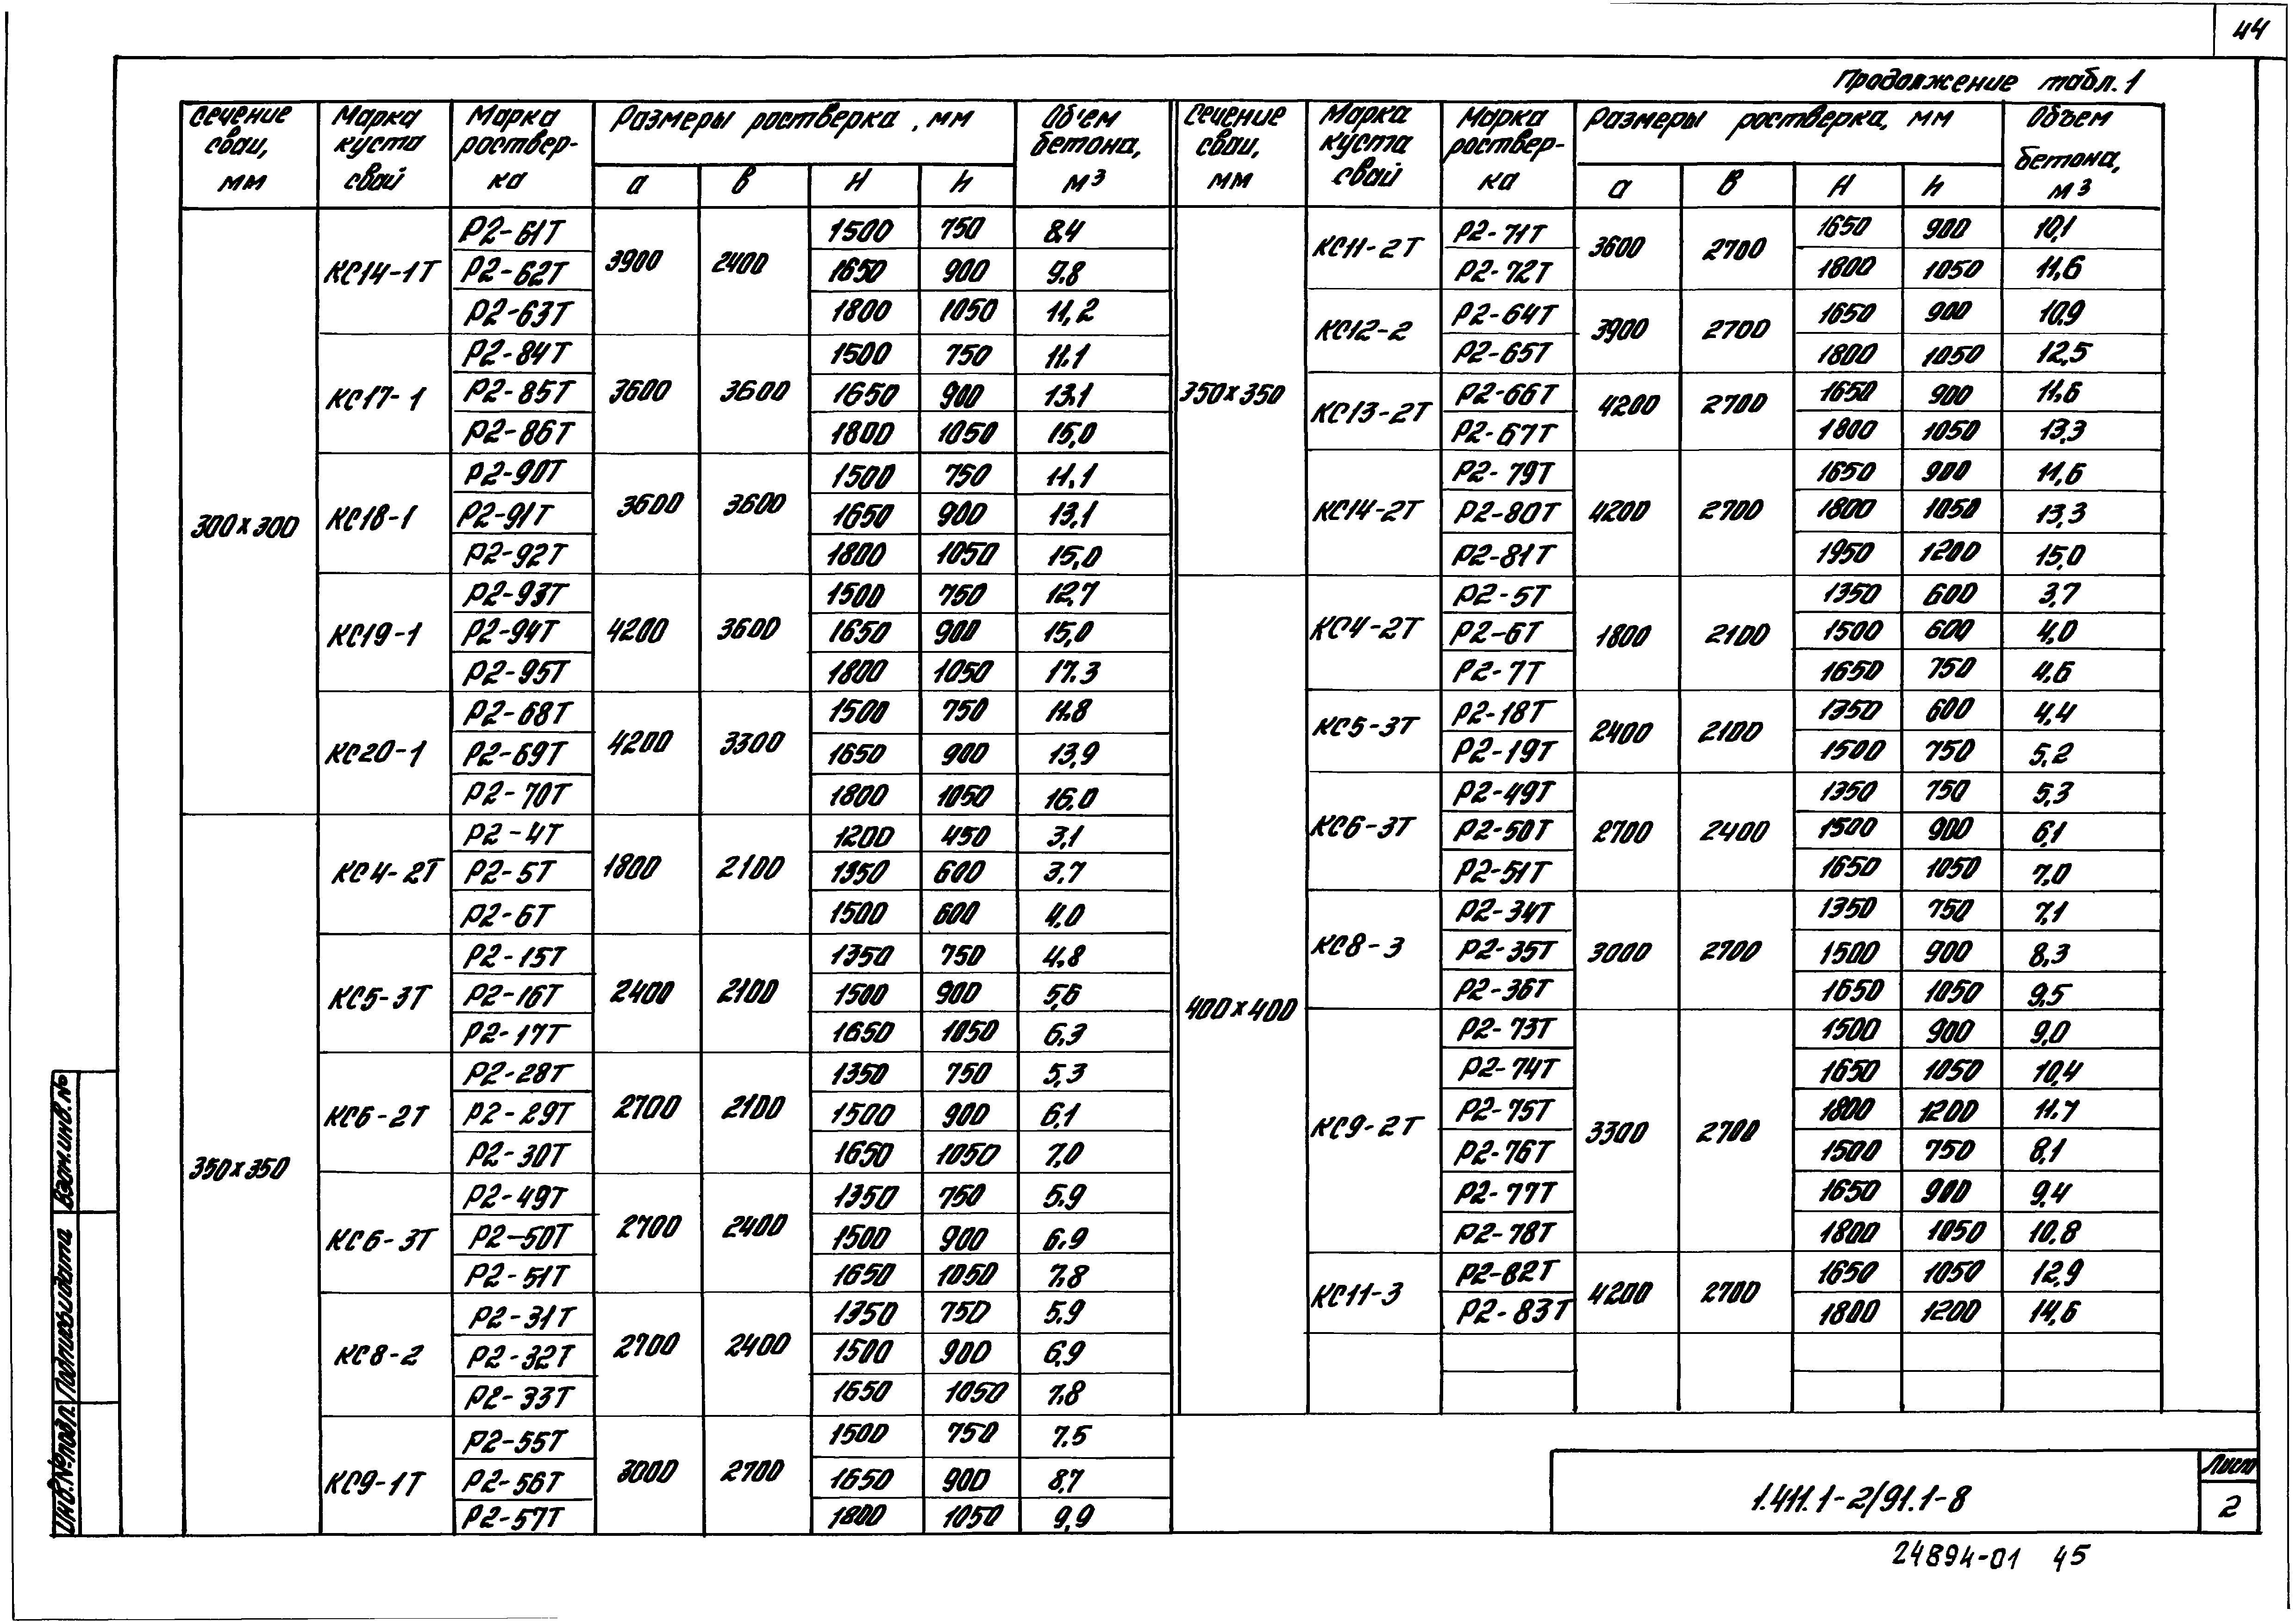 44
Продолжение табл. 1
Сечение сваи, мм Марка куста свай Марка роствер- ка Размеры ростверка, мм Объем бетона, м³
а в H h
300х300
КС14-1Т 3900 2400
Р2-61Т 1500 750 8,4
Р2-62Т 1650 900 9.8
Р2-63Т 1800 1050 11,2
КС17-1 3600 3600
Р2-84Т 1500 750 11.1
Р2-85Т 1650 900 13.1
Р2-86Т 1800 1050 15,0
КС18-1 3600 3600
Р2-90Т 1500 750 11,1
Р2-91Т 1650 900 13,1
Р2-92Т 1800 1050 15,0
КС19-1 4200 3600
Р2-93Т 1500 750 12,7
Р2-94Т 1650 900 15,0
Р2-95Т 1800 1050 17.3
КС20-1 4200 3300
Р2-68Т 1500 750 11.8
Р2-69Т 1650 900 13,9
Р2-70Т 1800 1050 16.0
350х350
КС4-2Т 1800 2100
Р2-4Т 1200 450 3,1
Р2-5Т 1350 600 3.7
Р2-6Т 1500 600 4.0
КС5-3Т 2400 2100
Р2-15Т 1350 750 4.8
Р2-16Т 1500 900 5,6
Р2-17Т 1650 1050 6.3
КС6-2Т 2700 2100
Р2-28Т 1350 750 5,3
Р2-29Т 1500 900 6,1
Р2-30Т 1650 1050 7,0
КС6-3Т 2700 2400
Р2-49Т 1350 750 5.9
Р2-50Т 1500 900 6.9
Р2-51Т 1650 1050 7,8
КС8-2 2700 2400
Р2-31Т 1350 750 5.9
Р2-32Т 1500 900 6,9
Р2-33Т 1650 1050 7,8
КС9-1Т 3000 2700
Р2-55Т 1500 750 7.5
Р2-56Т 1650 900 8,7
Р2-57Т 1800 1050 9,9
Сечение сваи, мм Марка куста свай Марка роствер- ка Размеры ростверка, мм Объем бетона, м³
а в H h
350х350
КС11-2Т 3600 2700
Р2-71Т 1650 900 10,1
Р2-72Т 1800 1050 11,6
КС12-2 3900 2700
Р2-64Т 1650 900 10,9
Р2-65Т 1800 1050 12,5
КС13-2Т 4200 2700
Р2-66Т 1650 900 11,6
Р2-67Т 1800 1050 13,3
КС14-2Т 4200 2700
Р2-79Т 1650 900 11,6
Р2-80Т 1800 1050 13,3
Р2-81Т 1950 1200 15,0
400х400
КС4-2Т 1800 2100
Р2-5Т 1350 600 3,7
Р2-6Т 1500 600 4,0
Р2-7Т 1650 750 4,6
КС5-3Т 2400 2100
Р2-18Т 1350 600 4,4
Р2-19Т 1500 750 5,2
КС6-3Т 2700 2400
Р2-49Т 1350 750 5,3
Р2-50Т 1500 900 6,1
Р2-51Т 1650 1050 7,0
КС8-3 3000 2700
Р2-34Т 1350 750 7,1
Р2-35Т 1500 900 8,3
Р2-36Т 1650 1050 9,5
КС9-2Т 3300 2700
Р2-73Т 1500 900 9,0
Р2-74Т 1650 1050 10,4
Р2-75Т 1800 1200 11.7
Р2-76Т 1500 750 8,1
Р2-77Т 1650 900 9,4
Р2-78Т 1800 1050 10,8
КС11-3 4200 2700
Р2-82Т 1650 1050 12,9
Р2-83Т 1800 1200 14,6
Инв.№подл. Подпись и дата Взам.инв.№
1.411.1-2/91.1-8
Лист
2
24894-01 45